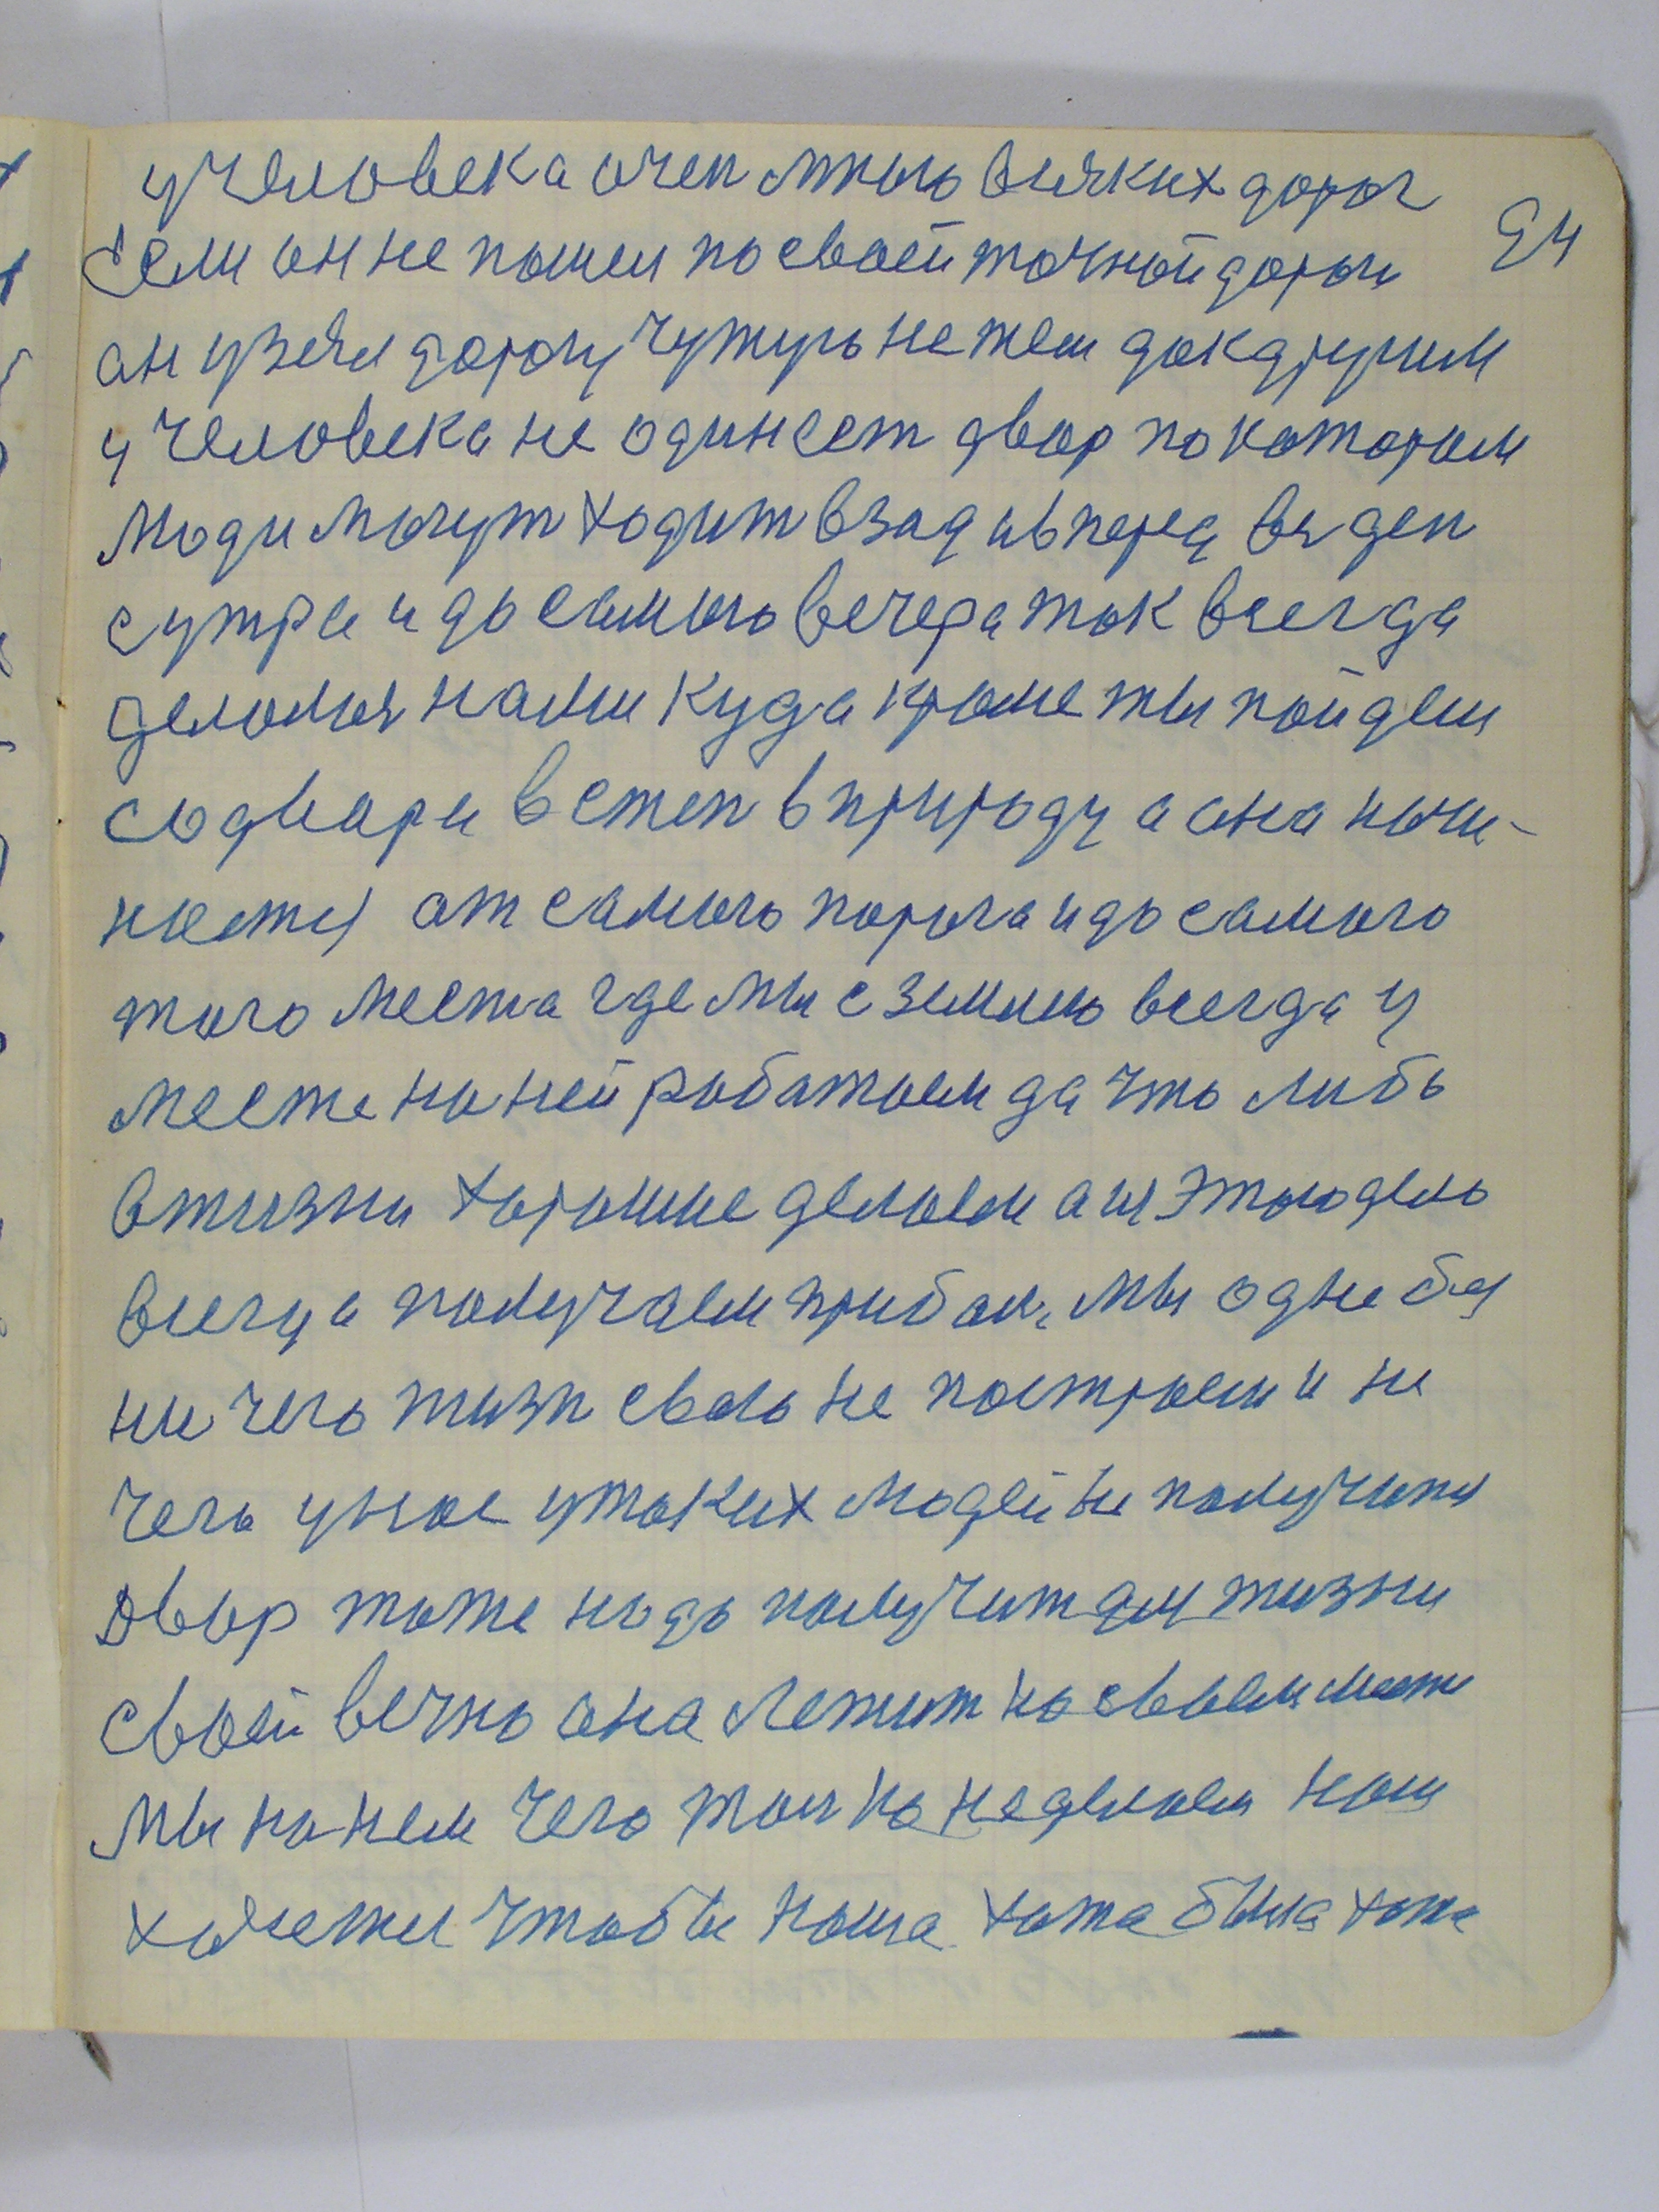 у человека очен много всяких дорог
94
Если он не пошел по своей точной дороги
он узял дорогу чужую не жел дак другим
у человека не один ест двор по которым
люди могут ходит взад и вперед вь ден
с утра и до самого вечера так всегда
делаися нами куда кроме ты пойдеш
со двора в степ в природу а она начи-
нается от самого порога и до самого
того места где мы с землею всегда у
месте на ней работаем да что либо
в жизни хорошие делаем а ш этого дело
всегда получаем прибал, мы одне бз
ни чего жизн свою не построем и не
чего унас утаких людей не получится
Двор тоже надо получит для жизни
своей вечно она лежит на своем месте
мы на нем чего толко не делаем нам
хочется чтобы наша хата была тоже